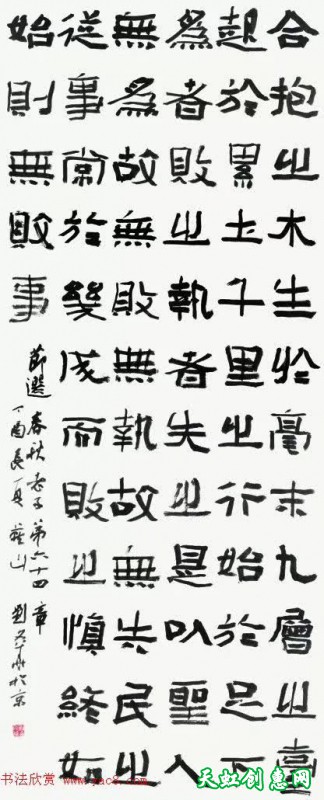 合抱之木生於毫末九層之臺
起於累土千里之行始於足下
為者敗之執者失之是以聖人
無為故無敗無執故無失民之
從事常於幾成而敗之慎終如
始則無敗事
節選春秋老子第六十四章
丁酉長夏 山劉 於京
书法欣赏 www.yac8.com
天虹创惠网